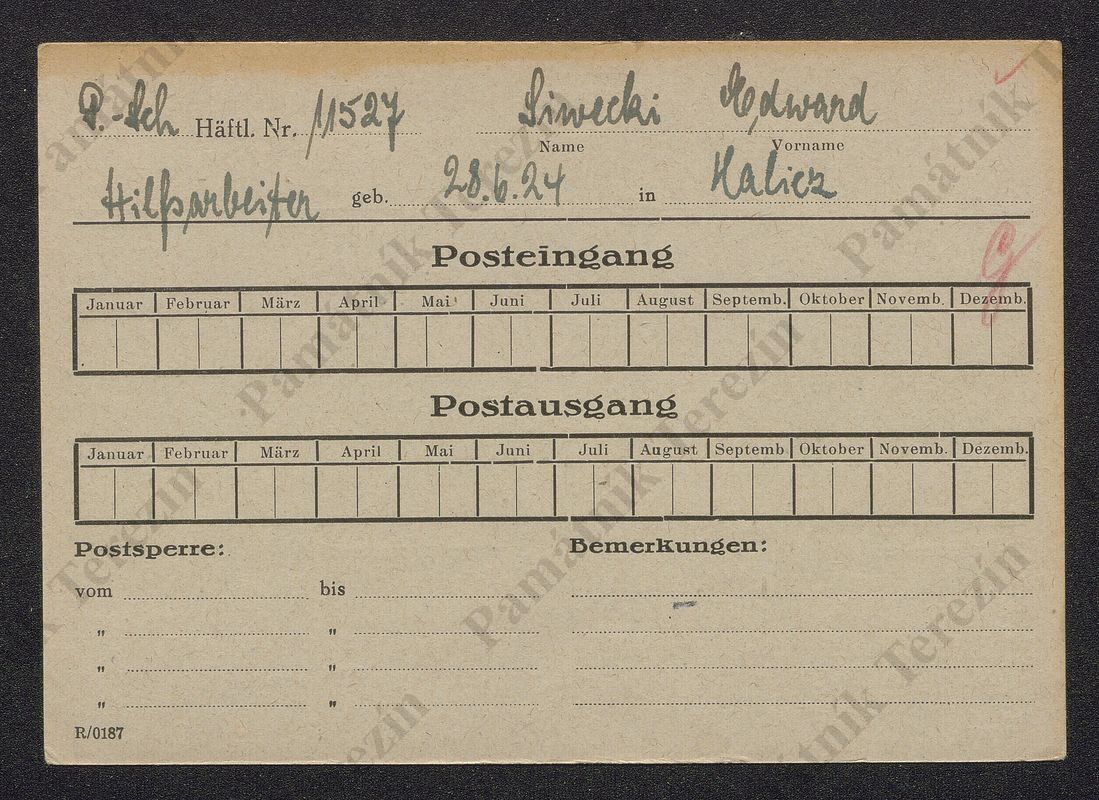 P.-Sch Häftl. Nr. 11527 Siwecki Edward
Name Vorname
Hilfsarbeiter geb. 28.6.24 in Halicz
Posteingang
Januar Februar März April Mai Juni Juli August Septemb. Oktober Novemb. Dezemb.
Postausgang
Januar Februar März April Mai Juni Juli August Septemb. Oktober Novemb. Dezemb.
Postsperre: Bemerkungen:
vom bis
" "
" "
" "
R/0187
Památník Terezín